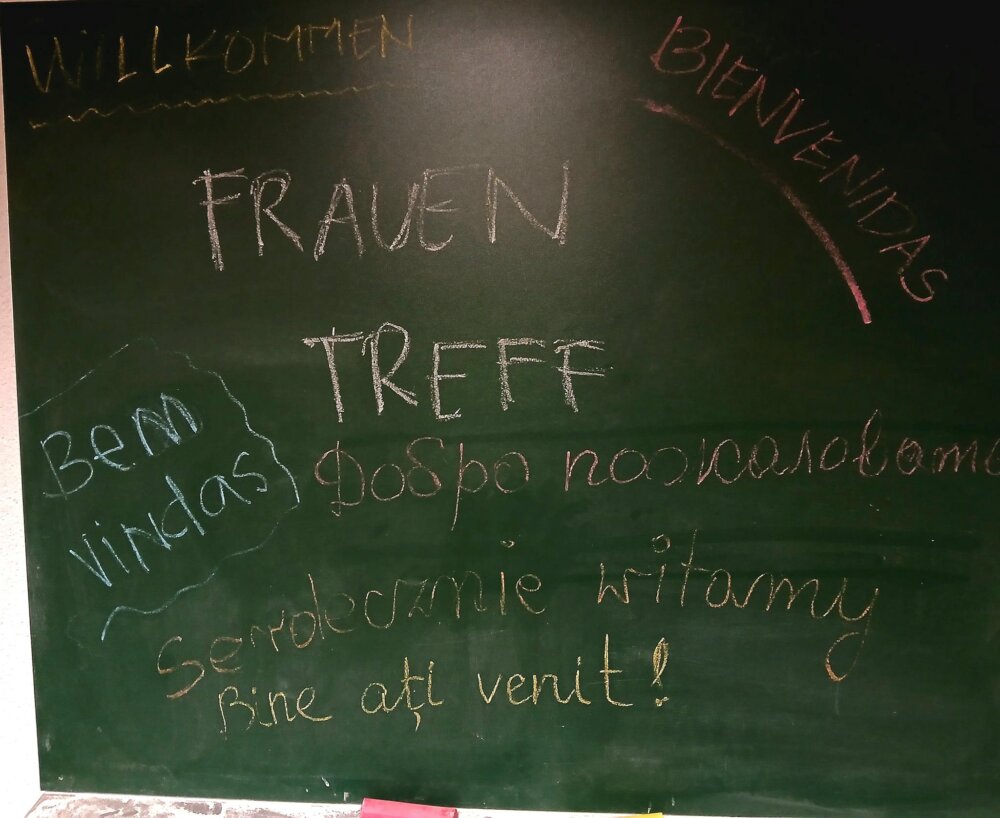 WILLKOMMEN
BIENVENIDAS
FRAUEN
TREFF
Bem
vindas
Добро пожаловать
Serdecznie witamy
Bine ați venit!